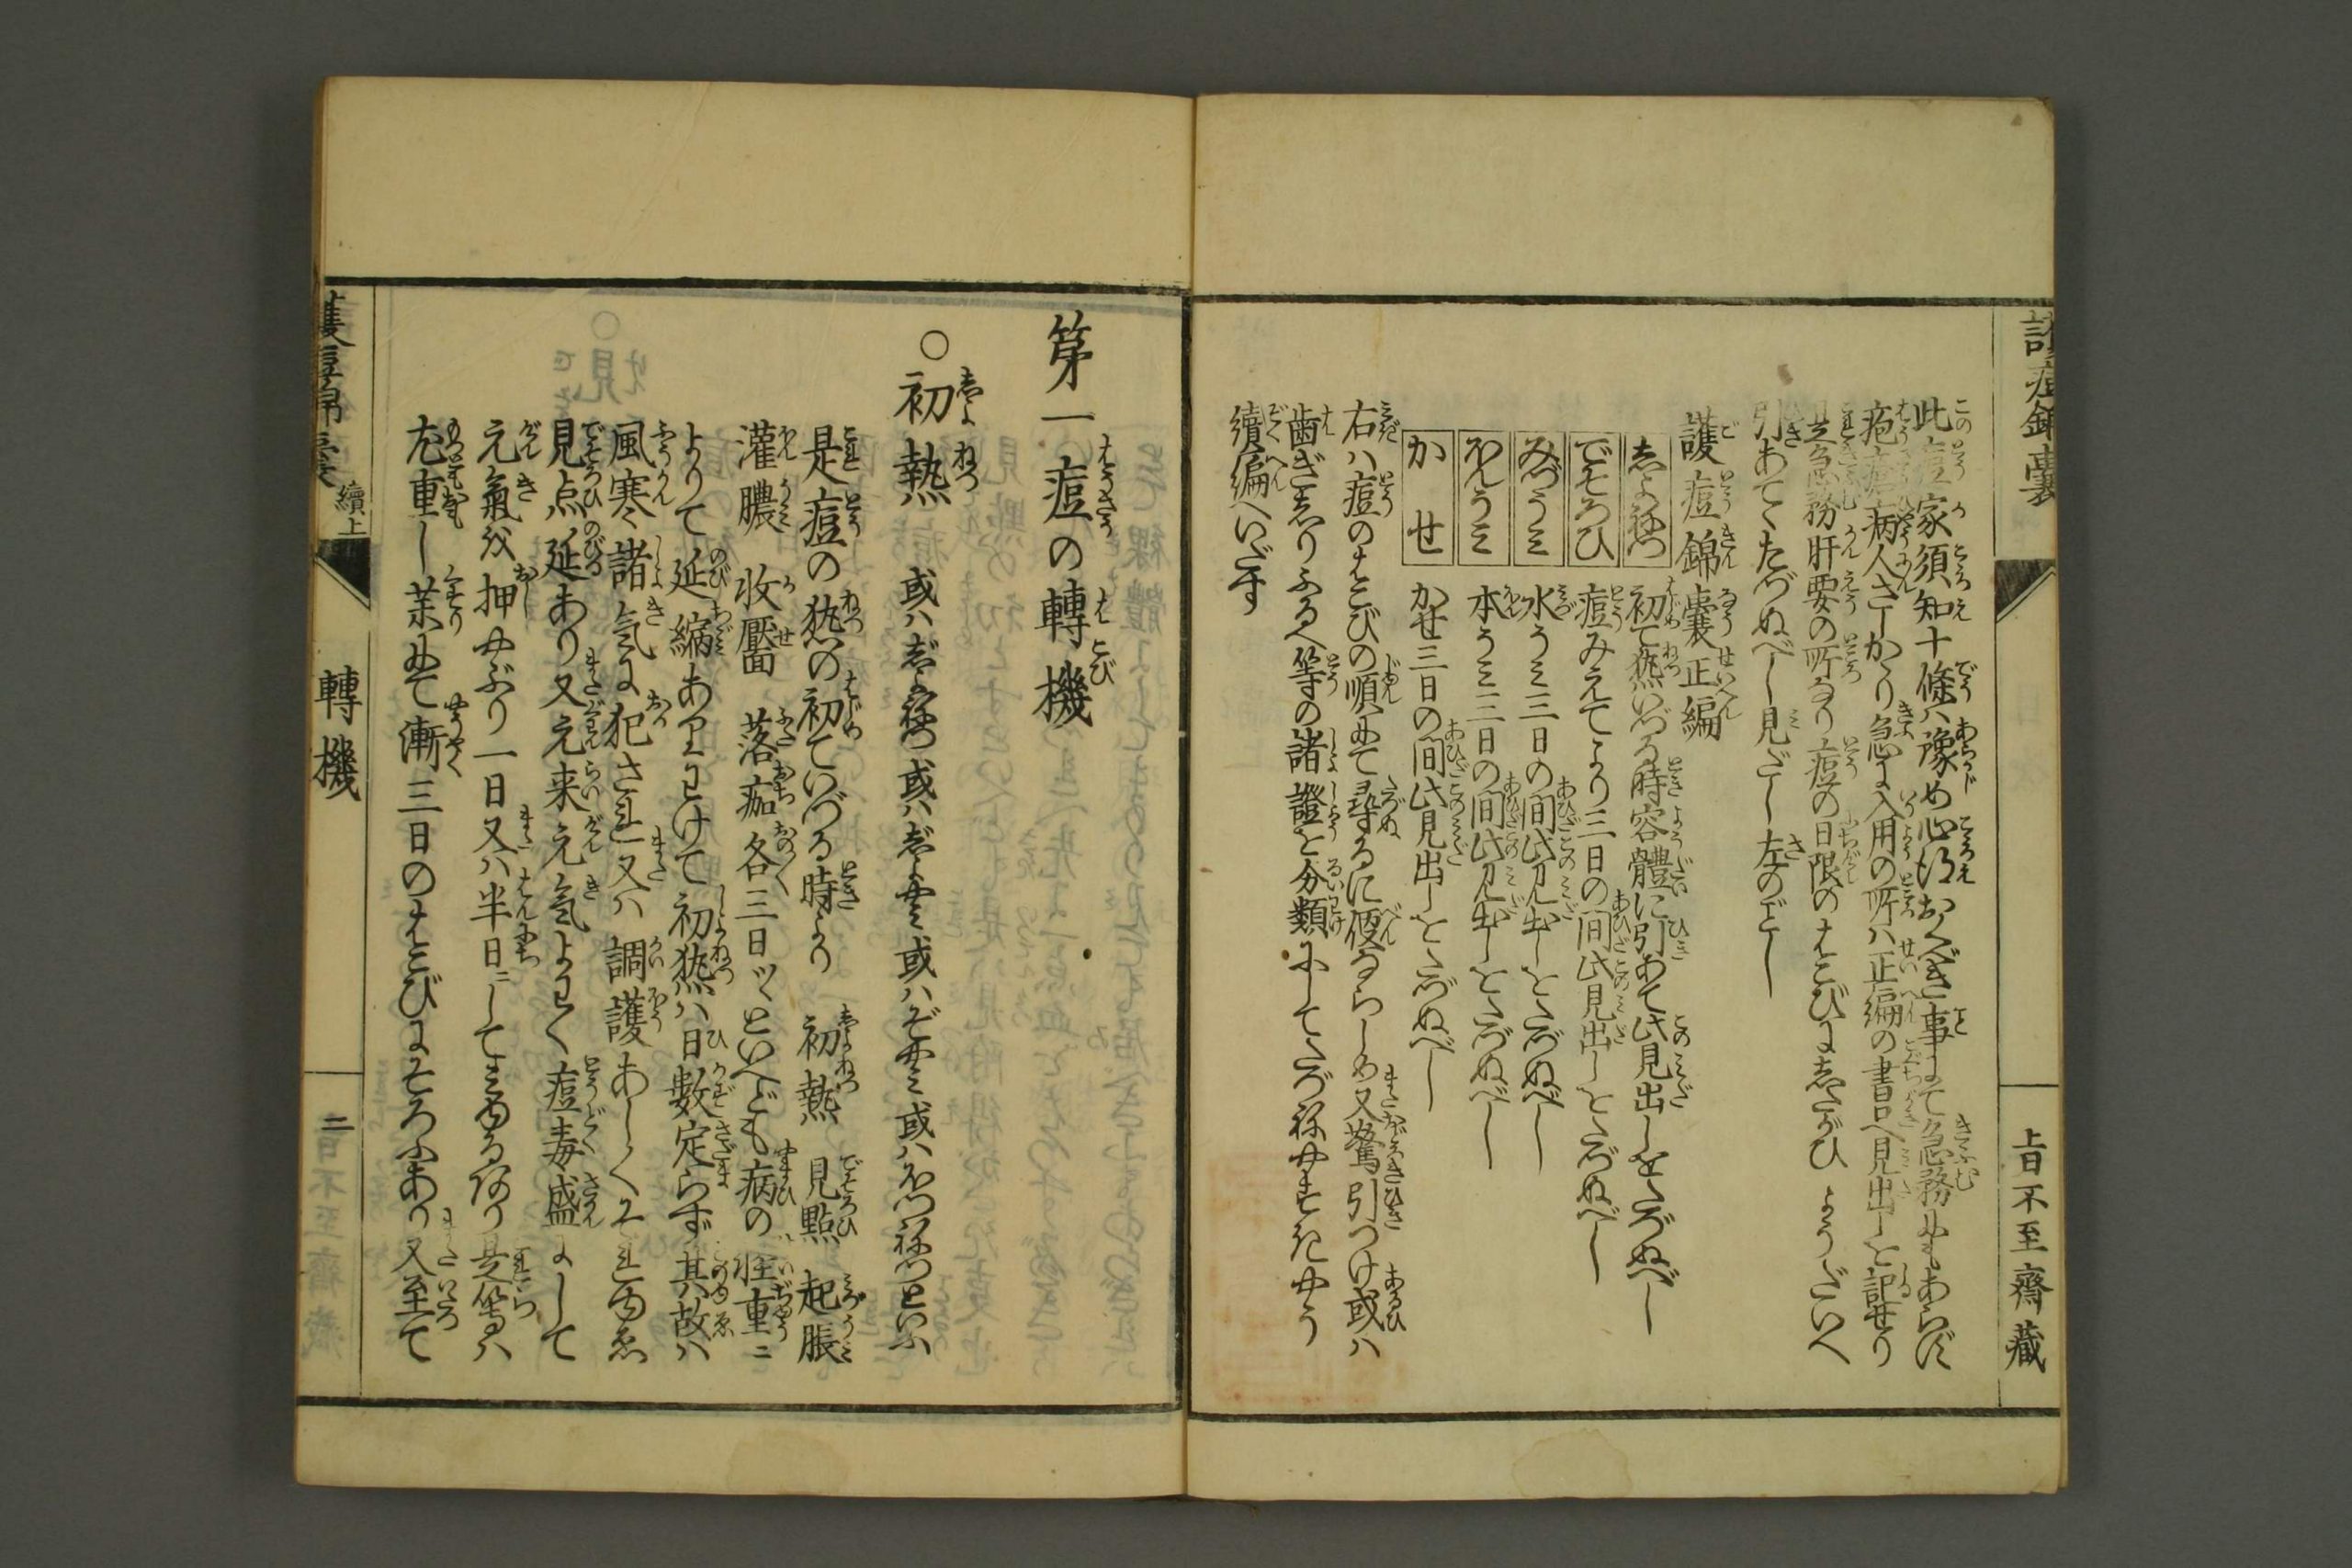 此痘家須知十條ハ豫め心得おくべき事にて急務にもあらず
疱瘡病人さしかゝり急に入用の所ハ正編の書口へ見出しを記せり
是急務肝要の所なり痘の日限のはこびにしたがひようだいへ
引あてゝたづぬべし見だし左のごとし
護痘錦嚢正編
志よねつ 初て熱いづる時容體に引あて此見出しをたづぬべし
でそろひ 痘みえてより三日の間此見出しをたづぬべし
みづうミ 水うミ三日の間此見出しをたづぬべし
ほんうミ 本うミ三日の間此見出しをたづぬべし
かせ かせ三日の間此見出しをたづぬべし
右ハ痘のはこびの順にて尋るに便ならしめ又驚引つけ或ハ
歯ぎしりふるへ等の諸證を分類にしてたづねやすきやう
續編へいだす
第一痘の轉機
○初熱 或ハ
是痘の熱の初ていづる時より 初熱 見點 起脹
灌膿 收靨 落痂各三日ツヽといへども病の軽重ニ
よりて延縮あり わけて初熱ハ日數定らず其故ハ
風寒諸氣に犯され又ハ調護あしくそれゆゑ
見点延あり又元来元氣よわく痘毒盛にして
元氣を押やぶり一日又ハ半日ニしてみゆるあり是等ハ
尤重し 薬にて漸三日のはこびにそろふあり又至て
護痘錦嚢
上日不至齋藏
續上
轉機
二